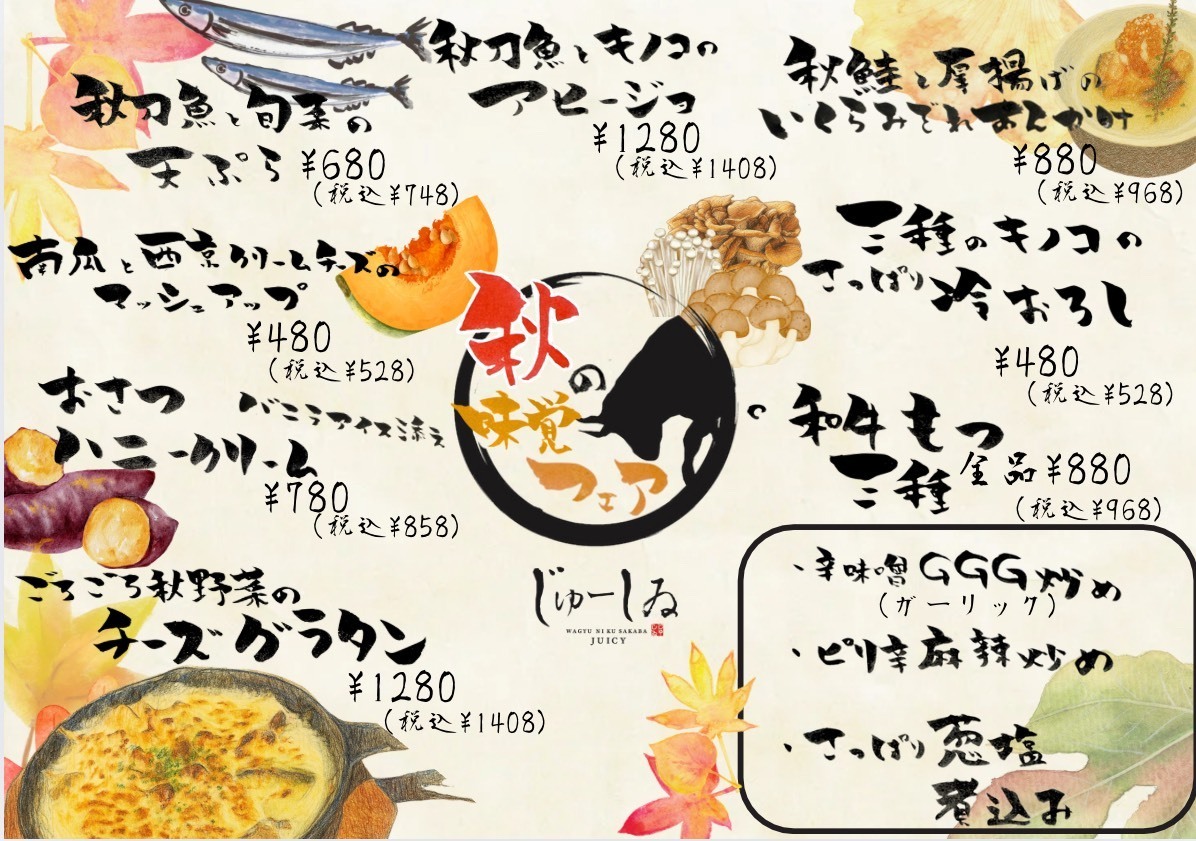 秋刀魚と旬菜の
天ぷら ¥680
(税込¥748)
秋刀魚とキノコの
アヒージョ
¥1280
(税込¥1408)
秋鮭と厚揚げの
いくらみぞれあんかけ
¥880
(税込¥968)
南瓜と西京クリームチーズの
マッシュアップ
¥480
(税込¥528)
三種のキノコの
さっぱり冷おろし
¥480
(税込¥528)
おさつ バニラアイス添え
ハニークリーム
¥780
(税込¥858)
秋の
味覚
フェア
和牛もつ
三種 全品 ¥880
(税込¥968)
ごろごろ秋野菜の
チーズグラタン
¥1280
(税込¥1408)
じゅーしゐ
WAGYU NI KU SAKABA
JUICY
・辛味噌GGG炒め
(ガーリック)
・ピリ辛麻辣炒め
・さっぱり葱塩
煮込み